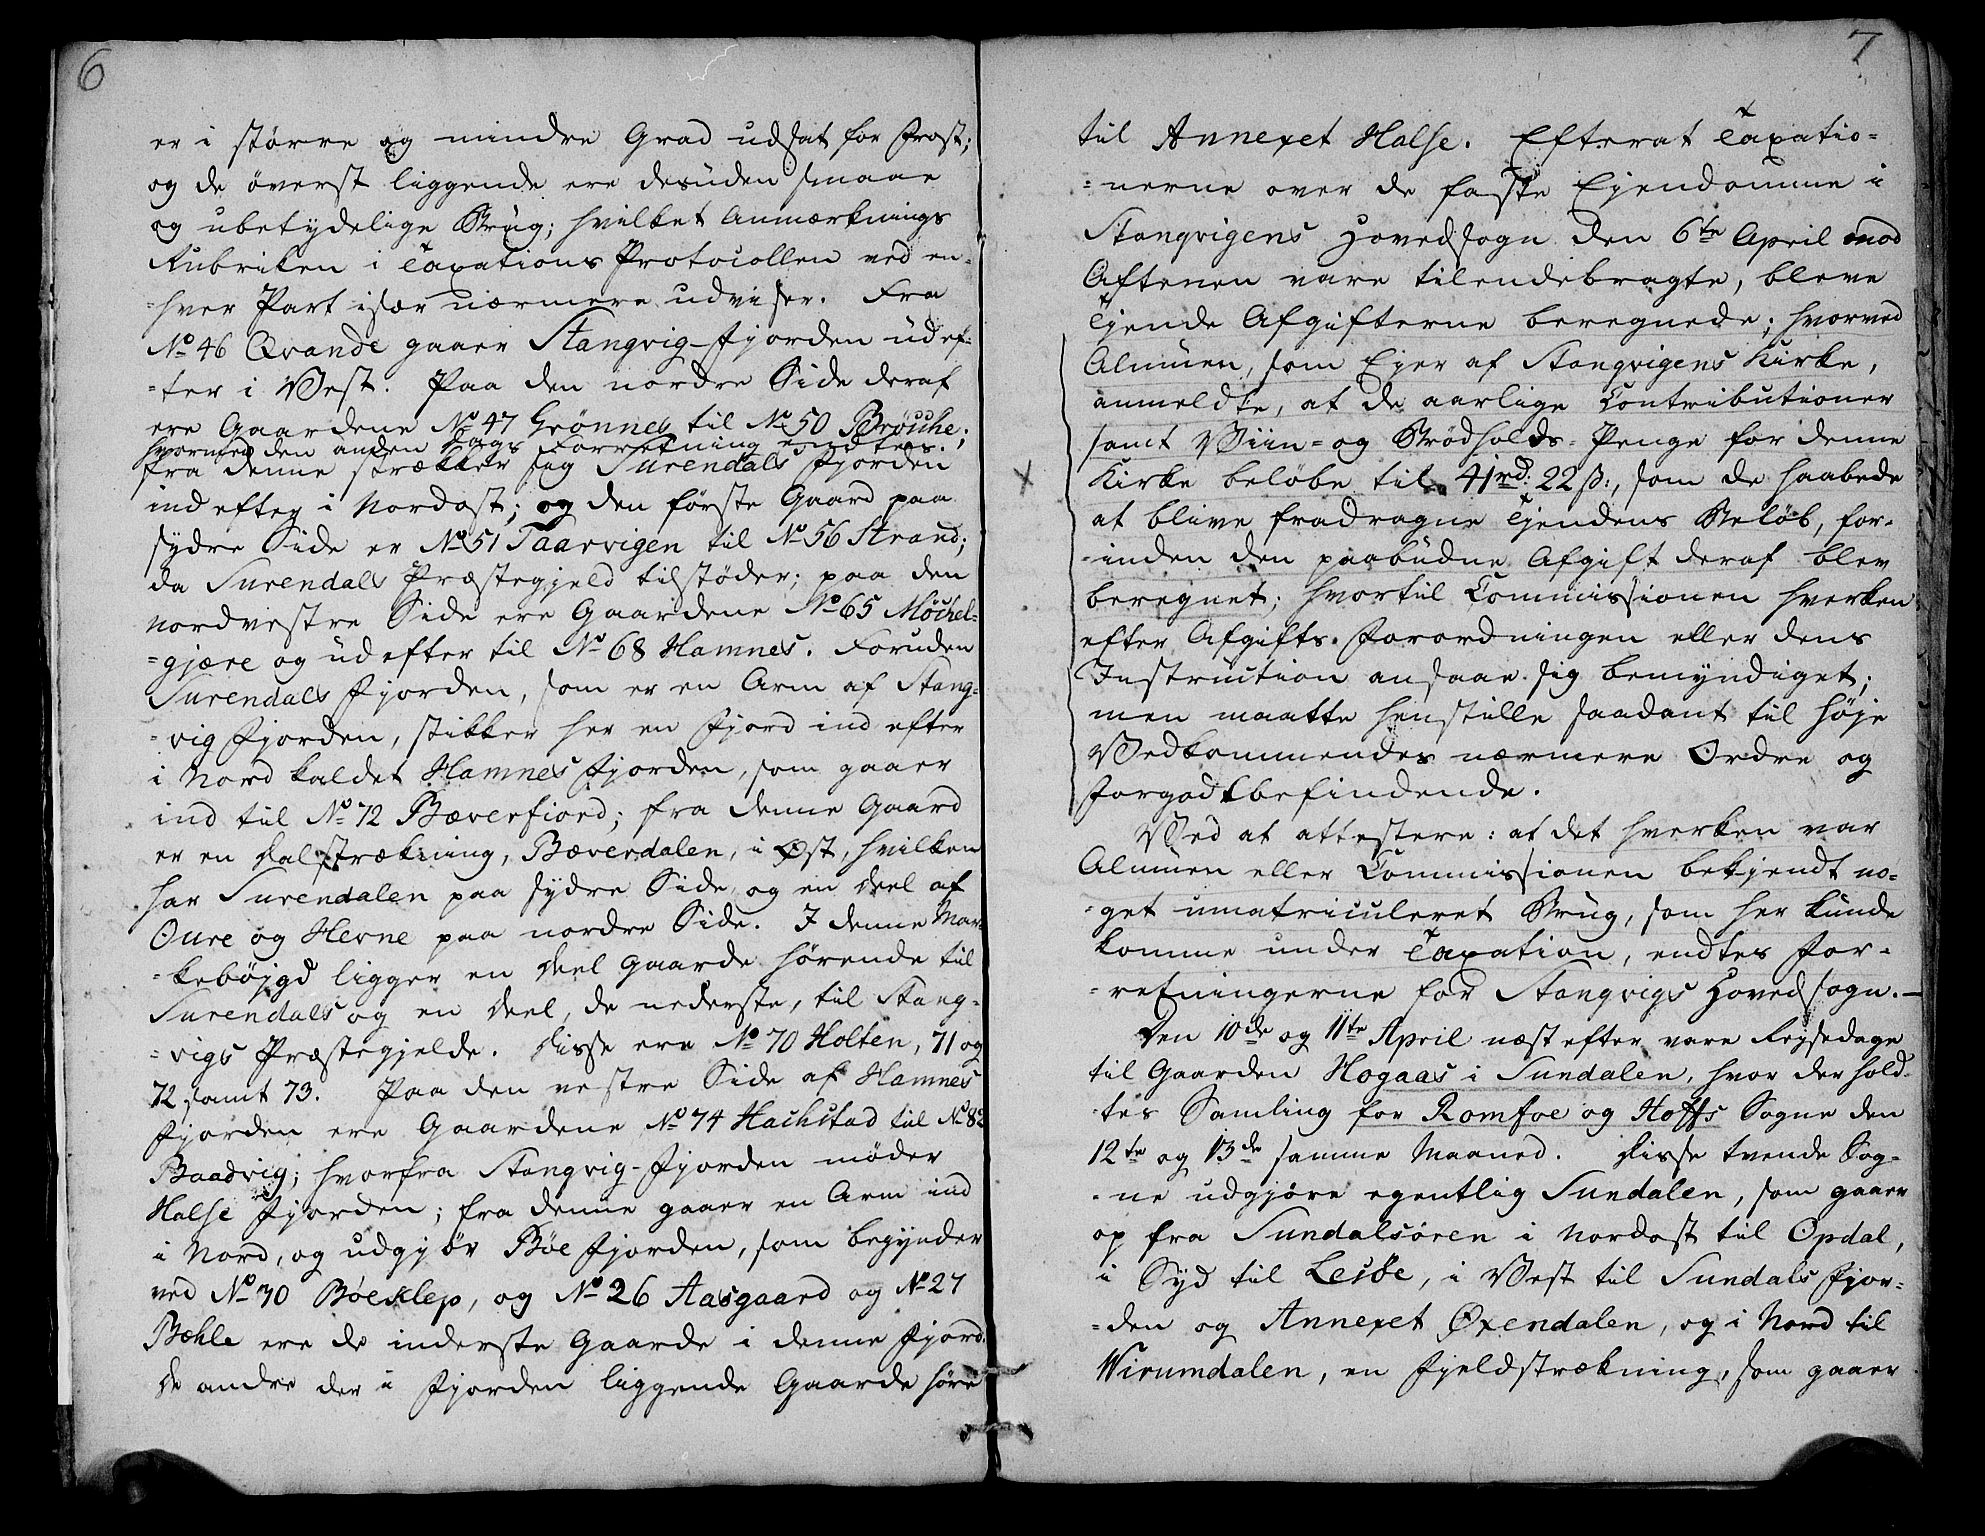 6
er i større og mindre Grad udsat for Frost;
og de øverst liggende ere desuden smaae
og ubetydelige Brug; hvilket Anmærknings
Rubriken i Taxations Protocollen ved en-
-hver Part især nærmere udviser. Fra
No 46 Qvande gaaer Stangvig-Fjorden udef-
-ter i Vest. Paa den nordre Side deraf
ere Gaardene No 47 Grønnes til No 50 Brøske;
hvormed den anden Dags Forretning endtes.
fra denne strækker sig Surendals Fjorden
ind efter i Nordost; og den første Gaard paa
sydre Side er No 51 Taarvigen til No 56 Strand;
da Surendals Præstegjeld tilstøder; paa den
nordvestre Side ere Gaardene No 65 Møckel-
-gjære og udefter til No 68 Hamnes. Foruden
Surendals Fjorden, som er en Arm af Stang-
-vig Fjorden, stikker her en Fjord ind efter
i Nord kaldet Hamnes Fjorden, som gaaer
ind til No 72 Bæverfiord; fra denne Gaard
er en Dalstrækning, Bæverdalen, i Øst, hvilken
har Surendalen paa sydre Side og en Deel af
Oure og Hevne paa nordre Side. I denne Mar-
-kebøjgd ligger en Deel Gaarde hørende til
Surendals og en Deel, de nederste, til Stang-
-vigs Præstegjelde. Disse ere No 70 Holten, 71 og
72 samt 73. Paa den vestre Side af Hamnes
Fjorden ere Gaardene No 74 Hachstad til No 82
Baadvig; hvorfra Stangvig-Fjorden møder
Halse Fjorden; fra denne gaaer en Arm ind
i Nord, og udgjør Bøe Fjorden, som begynder
ved No 30 Bøeklep, og No 26 Aasgaard og No 27
Bæhle ere de inderste Gaarde i denne Fjord.
De andre der i Fjorden liggende Gaarde høre
7
til Annexet Halse. Efterat Taxatio-
-nerne over de faste Ejendomme i
Stangvigens Hovedsogn den 6te April mod
Aftenen vare tilendebragte, bleve
Tjende Afgifterne beregnede; hvorved
Almuen, som Ejer af Stangvigens Kirke,
anmeldte, at de aarlige Contributioner
samt Viin- og Brødholds-Penge for denne
Kirke beløbe til 41rd: 22 s:, som de haabede
at blive fradragne Tjendens Beløb, for-
-inden den paabudne Afgift deraf blev
beregnet; hvortil Commissionen hverken
efter Afgifts-Forordningen eller dens
Instruction ansaae sig bemyndiget;
men maatte henstille saadant til høje
Vedkommendes nærmere Ordre og
Forgodtbefindende.
Ved at attestere: at det hverken var
Almuen eller Commissionen bekjendt no-
-get umatriculeret Brug, som her kunde
komme under Taxation, endtes For-
-retningerne for Stangvigs Hovedsogn.—
Den 10de og 11te April næst efter vare Rejsedage
til Gaarden Hogaas i Sundalen, hvor der hold-
-tes Samling for Romfoe og Hoffs Sogne den
12te og 13de samme Maaned. Disse tvende Sog-
-ne udgjøre egentlig Sundalen, som gaaer
op fra Sundalsøren i Nordost til Opdal,
i Syd til Lesøe, i Vest til Sundals Fjor-
-den og Annexet Øxendalen, og i Nord til
Wirumdalen, en Fjeldstrækning, som gaaer